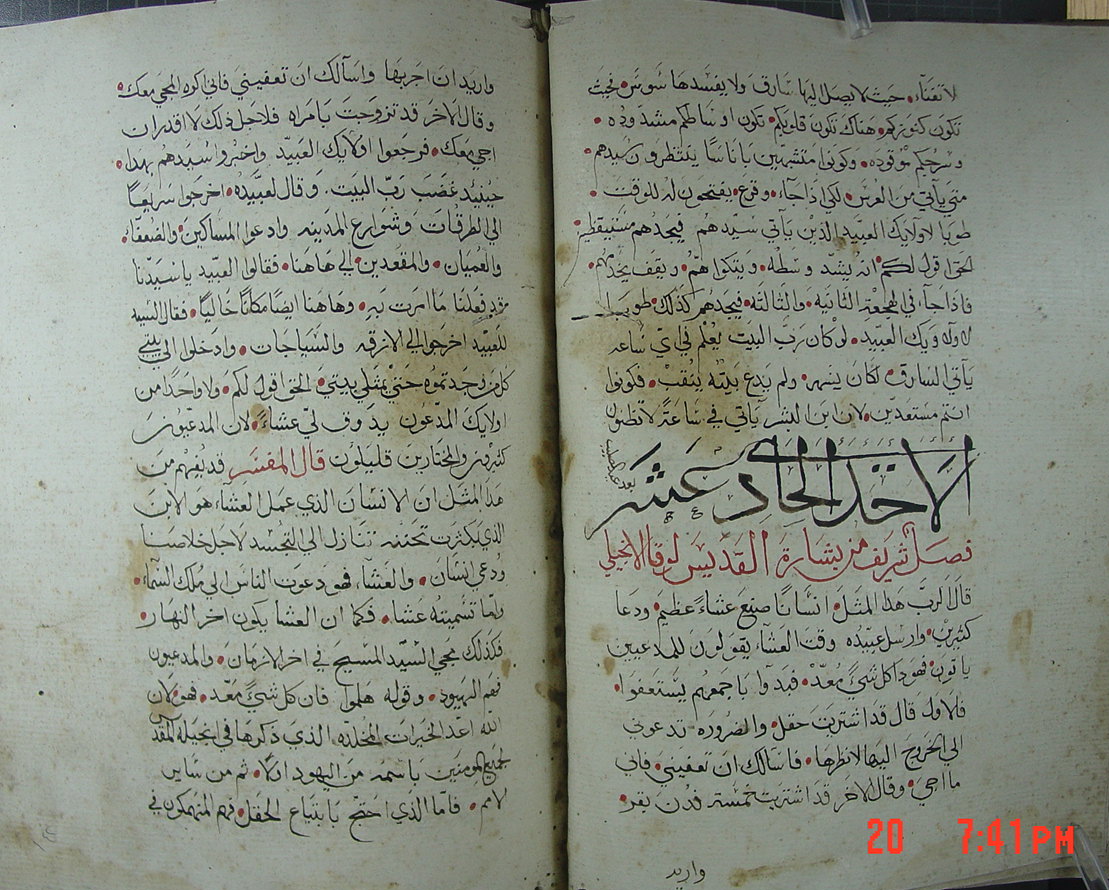 لا تفناء. حيث لا يصل اليها سارق ولا يفسدها سوس فحيث
تكون كنوزكم. هناك تكون قلوبكم. تكون اوساطكم مشدوده
وسرجكم موقوده. وكونوا متشبهين باناسًا ينتظرون سيدهم
متي ياتي من العرس. لكي اذا جاء. وقرع. يفتحون له للوقت
طوبا لاولايك العبيد الذين ياتي سيدهم فيجدهم مستيقظين
الحق اقول لكم. انه يشد وسطه. ويتكوا هم. ويقف يخدمهم.
فاذا جاء في الهجعة الثانيه. والثالثه. فيجدهم كذلك. طوبا
لاولاويك العبيد. لو كان رب البيت يعلم في اي ساعه
ياتي السارق. لكان يسهر. ولم يدع بيته ينقب. فكونوا
انتم مستعدين. لان ابن البشر ياتي في ساعة لا تظنون
الاحد الحادي عشر
بعد
فصل شريف من بشارة القديس لوقا الانجيلي
قال الرب هذا المثل. انسانًا صنع عشاءً عظيم. ودعا
كثيرين. وارسل عبيده وقت العشاء يقولون للمدعيين
ياتون. فهوذا كل شيٍ معد. فبدوا باجمعهم يستعفوا
فلاول قال قد اشتريت حقل. والضروره تدعوني
الي الخروج اليها لانظرها. فاسالك ان تعفيني. فاني
ما اجي. وقال الاخر قد اشتريت خمسة فدن بقر.
واريد
واريد ان اجربها واسالك ان تعفيني فاني اكره المجي معك.
وقال الاخر قد تزوجت بامراه فلاجل ذلك لا اقدر ان
اجي معك. فرجعوا اولايك العبيد واخبروا سيدهم بهذا.
حينيذ غضب رب البيت. وقال لعبيده. اخرجوا سريعًا
الي الطرقات وشوارع المدينه وادعوا المساكين. والضعفاء.
والعميان. والمقعدين. الي هاهنا. فقالوا العبيد ياسيدنا
فعلنا ما امرت به. وهاهنا ايضًا مكانًا خاليًا. فقال السيد
للعبيد اخرجوا الي الازقه والسياجات. وادخلوا الي بيتي
كلمن وجدتموه حتي يمتلي بيتي. الحق اقول لكم. ولا واحدًا من
اولايك المدعون يدوق لي عشاءً. لان المدعيون
كثيرون والمختارين قليلون قال المفسر قد يفهم من
هذا المثل ان الانسان الذي عمل العشاء هو الابن
الذي بكثرت تحننه تنازل الي التجسد لاجل خلاصنا
ودعي انسان. والعشاء فهو دعوت الناس الي ملك السماء
وانما تسميته عشاء. فكما ان العشا يكون اخر النهار.
فكذلك مجي السيد المسيح في اخر الازمان. والمدعيون
فهم اليهود. وقوله هلموا فان كل شيٍ معد. فهو لان
الله اعد الخيرات المخلده الذي ذكرها في انجيله المقدس
لجميع المومنين باسمه من اليهود اولا. ثم من ساير
لامم. فاما الذي احتج بابتياع الحقل. فهم المنهمكون في
20 7:41 PM